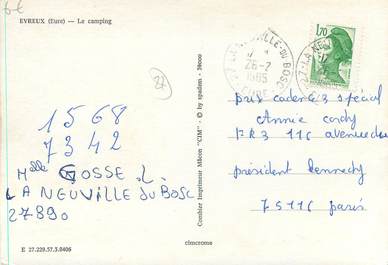 6-€
EVREUX (Eure) — Le camping
27
1568
7342
Melle GOSSE .L.
LA NEUVILLE du BOSC
27890
E 27.229.57.3.0406
Combier Imprimeur Mâcon "CIM" - © by spadem - 74000
cimcrome
27-LA NEUVILLE-DU BOSC
26-2
1985
EURE
1,70
27-LA NEU
prix cadence 3 spécial
Annie cordy
FR3 116 avenue du
président kennedy
75116 paris